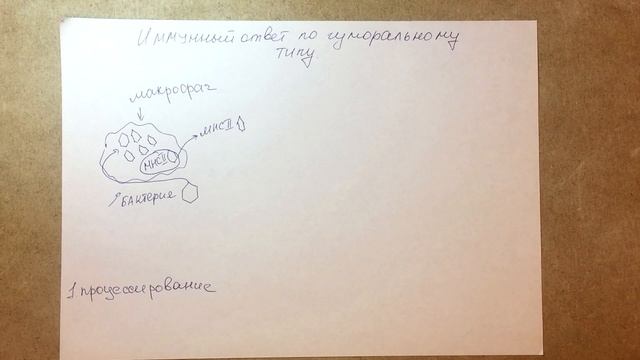 Иммунный ответ по гуморальному
типу
макрофаг
МНС II
МНС II
БАКТЕРИЯ
1 процессирование